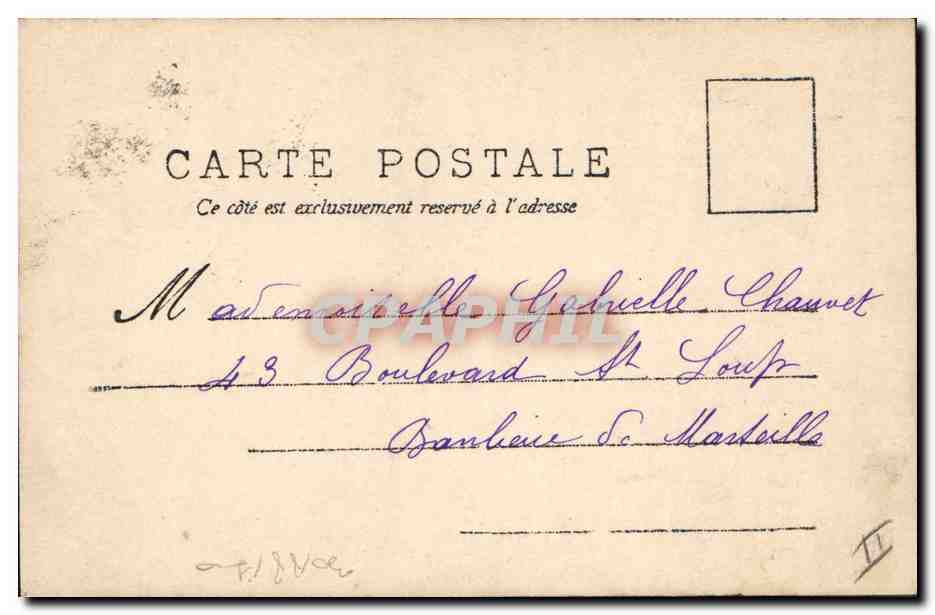 CARTE POSTALE
Ce côté est exclusivement reservé à l'adresse
Mademoiselle Gabrielle Chauvet
CPAPHIL
43 Boulevard St Loup
Banlieue de Marseille
II